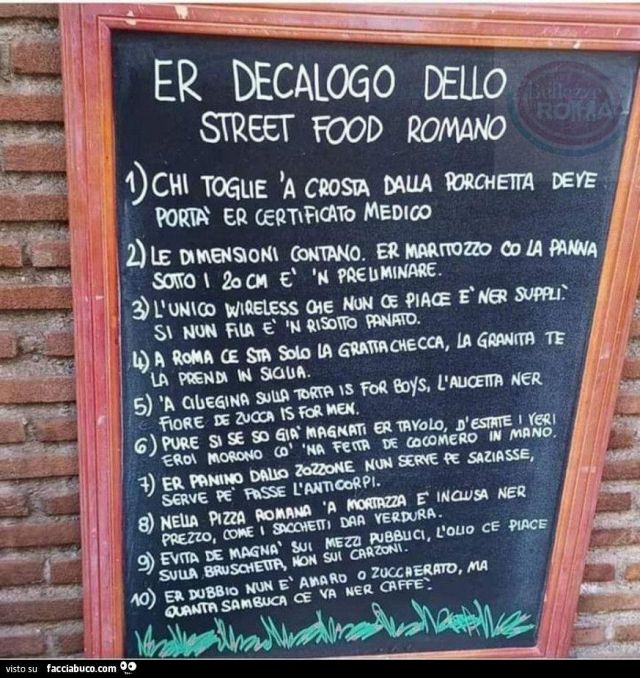 ER DECALOGO DELLO
STREET FOOD ROMANO
Bellezze
ROMA
1) CHI TOGLIE 'A CROSTA DALLA PORCHETTA DEVE
PORTA' ER CERTIFICATO MEDICO
2) LE DIMENSIONI CONTANO. ER MARITOZZO CO LA PANNA
SOTTO I 20 CM E' 'N PRELIMINARE.
3) L'UNICO WIRELESS CHE NUN CE PIACE E' NER SUPPLI'
SI NUN FILA E' 'N RISOTTO PANATO.
4) A ROMA CE STA SOLO LA GRATTACHECCA, LA GRANITA TE
LA PRENDI IN SICILIA.
5) 'A CILIEGINA SULLA TORTA IS FOR BOYS, L'ALICETTA NER
FIORE DE ZUCCA IS FOR MEN.
6) PURE SI SE SO GIA' MAGNATI ER TAVOLO, D'ESTATE I VERI
EROI MORONO CO' 'NA FETTA DE COCOMERO IN MANO.
7) ER PANINO DALLO ZOZZONE NUN SERVE PE SAZIASSE,
SERVE PE' FASSE L'ANTICORPI.
8) NELLA PIZZA ROMANA 'A MORTAZZA E' INCLUSA NER
PREZZO, COME I SACCHETTI DAA VERDURA.
9) EVITA DE MAGNA' SUI MEZZI PUBBLICI, L'OLIO CE PIACE
SULLA BRUSCHETTA, NON SUI CARZONI.
10) ER DUBBIO NUN E' AMARO O ZUCCHERATO, MA
QUANTA SAMBUCA CE VA NER CAFFE'.
visto su facciabuco.com